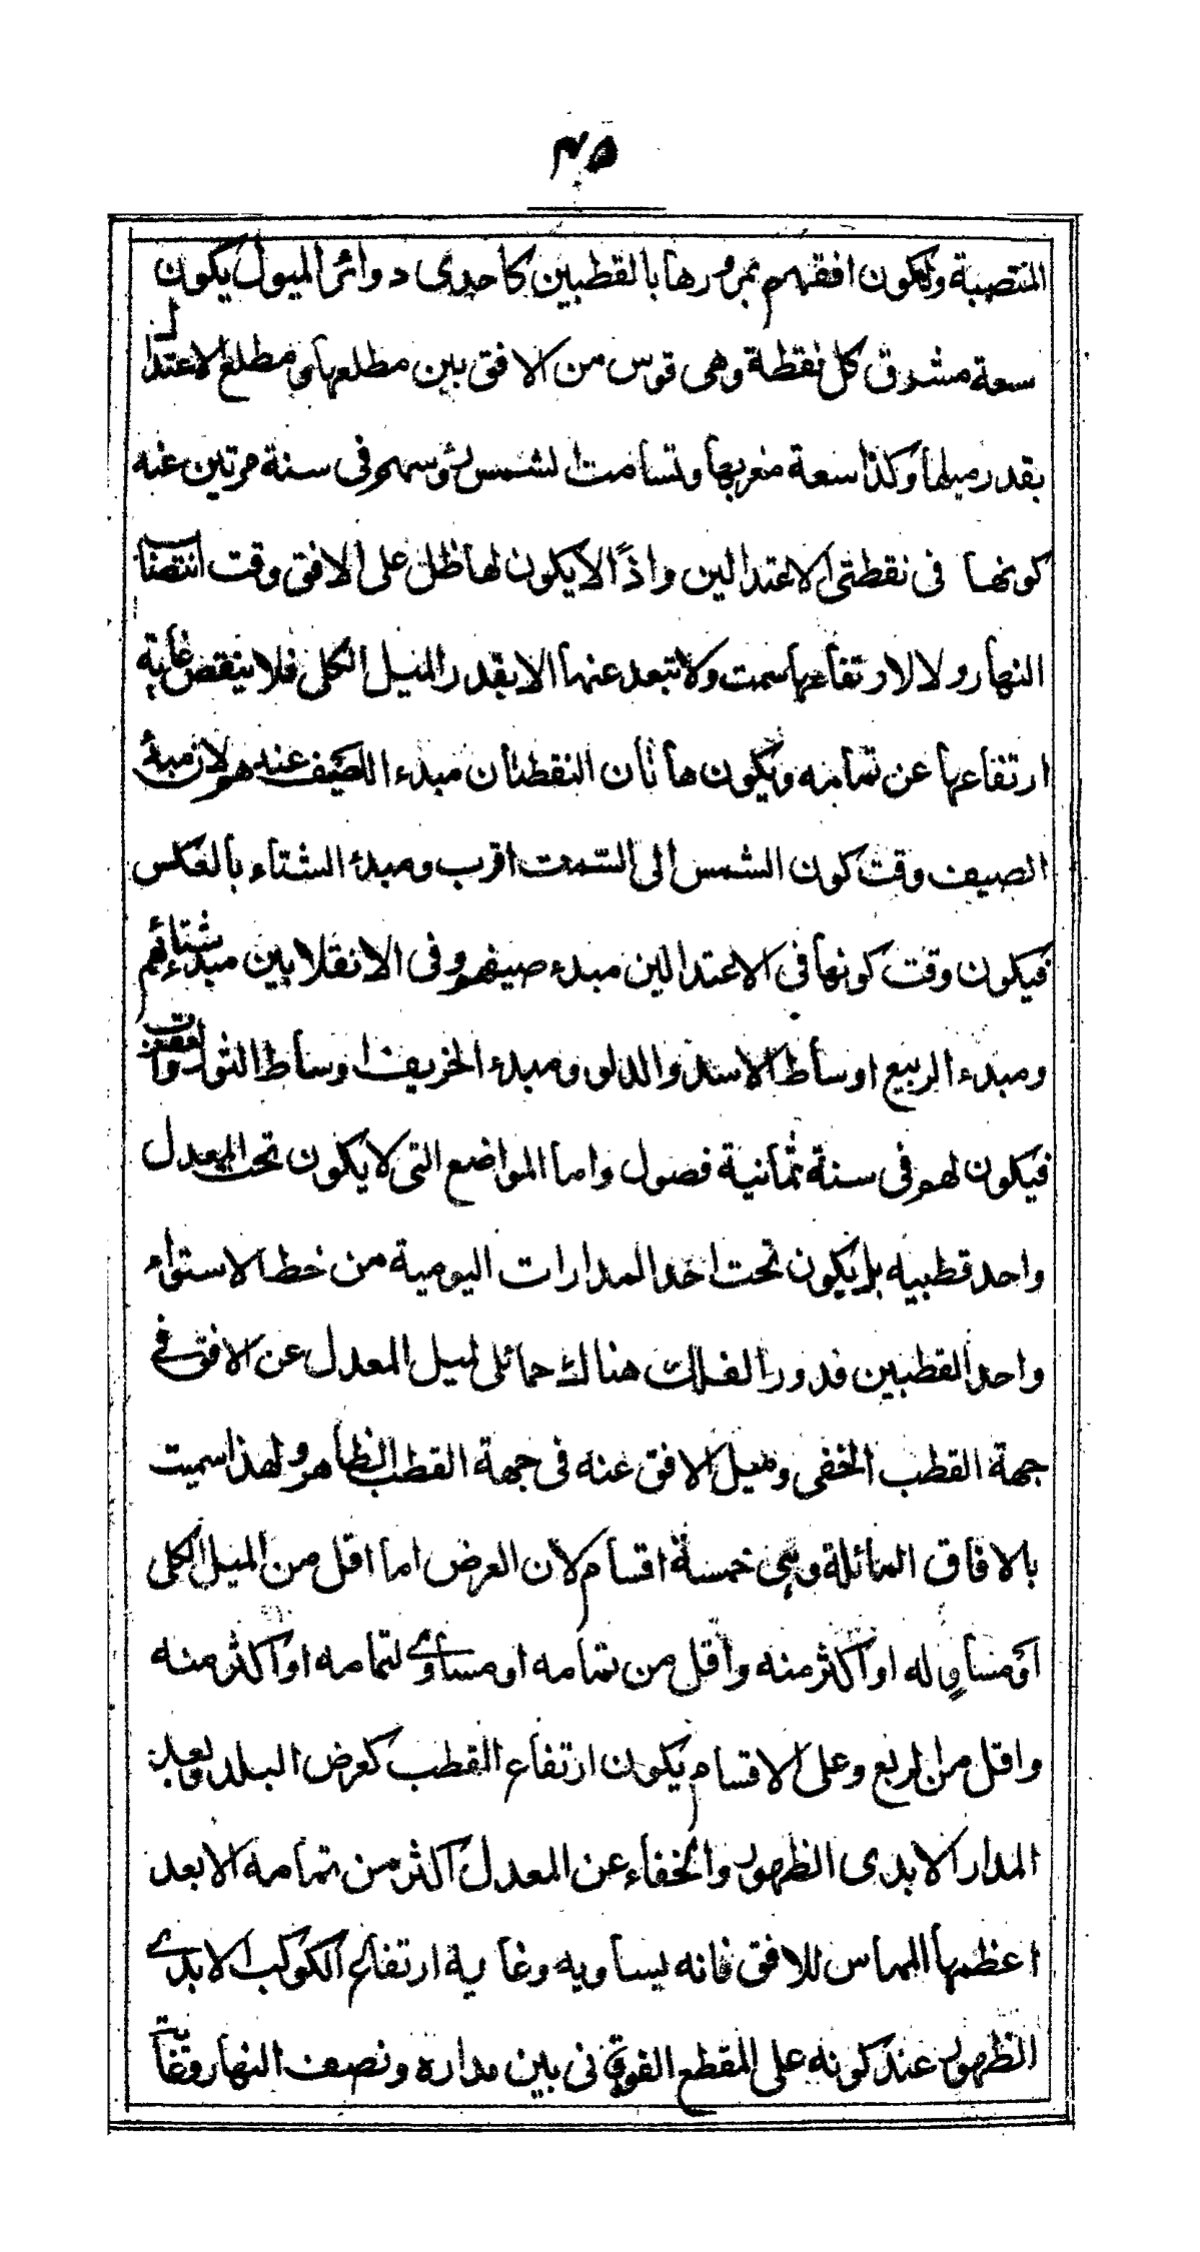 ٣٥
المنتصبة ولكون افقهم بمرورها بالقطبين كاحدى دوائر الميول يكون
سعة مشرق كل نقطة وهى قوس من الافق بين مطلعها و مطلع الاعتدال
بقدر ميلها وكذا سعة مغربها وتسامت الشمس رؤسهم فى سنة مرتين عند
كونها فى نقطتى الاعتدالين واذًا لا يكون لها ظل على الافق وقت انتصاف
النهار ولا لارتفاعها سمت ولا تبعد عنها الا بقدر الميل الكلى فلا ينقص غاية
ارتفاعها عن تمامه ويكون هاتان النقطتان مبدء الصيف عندهم لان مبدأ
الصيف وقت كون الشمس الى السمت اقرب ومبدء الشتاء بالعكس
فيكون وقت كونها فى الاعتدالين مبدء صيفهم وفى الانقلابين مبدء شتائهم
ومبدء الربيع اوساط الاسد والدلو ومبدء الخريف اوساط الثور والعقرب
فيكون لهم فى سنة ثمانية فصول واما المواضع التى لا يكون تحت المعدل
واحد قطبيه بل يكون تحت احد المدارات اليومية من خط الاستواء
واحد القطبين فدور الفلك هناك حمائلى لميل المعدل عن الافق فى
جهة القطب الخفى وميل الافق عنه فى جهة القطب الظاهر ولهذا سميت
بالافاق المائلة وهى خمسة اقسام لان العرض اما اقل من الميل الكلى
او مساوٍ له او اكثر منه واقل من تمامه او مساوى لتمامه او اكثر منه
واقل من الربع وعلى الاقسام يكون ارتفاع القطب كعرض البلد وبعد
المدار الابدى الظهور والخفاء عن المعدل اكثر من تمامه الا بعد
اعظمها المماس للافق فانه يساويه وغاية ارتفاع الكوكب الابدى
الظهور عند كونه على المقطع الفوقانى بين مداره ونصف النهار وغاية